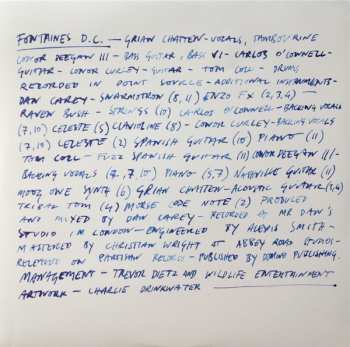 FONTAINES D.C. — GRIAN CHATTEN - VOCALS, TAMBOURINE
CONOR DEEGAN III - BASS GUITAR, BASS VI - CARLOS O'CONNELL -
GUITAR - CONOR CURLEY - GUITAR - TOM COLL - DRUMS
RECORDED IN POINT SOURCE - ADDITIONAL INSTRUMENTS -
DAN CAREY - SWARMOTRON (8, 11) ENZO FX (2,3,4) —
RAVEN BUSH - STRINGS (10) CARLOS O'CONNELL - BACKING VOCALS
(7,10) CELESTE (5) CLAVIOLINE (8) - CONOR CURLEY - BACKING VOCALS
(7,10) CELESTE (2) SPANISH GUITAR (10) PIANO (11)
TOM COLL - FUZZ SPANISH GUITAR (11) CONOR DEEGAN III -
BACKING VOCALS (7,10) PIANO (5,7) NASHVILLE GUITAR (11)
MOOZ ONE SYNTH (6) GRIAN CHATTEN - ACOUSTIC GUITAR (3,4)
TOM (4) MORSE CODE NOTE (2) PRODUCED
AND MIXED BY DAN CAREY - RECORDED AT MR DAN'S
STUDIO IN LONDON - ENGINEERED BY ALEXIS SMITH -
MASTERED BY CHRISTIAN WRIGHT AT ABBEY ROAD STUDIOS -
RELEASED ON PARTISAN RECORDS - PUBLISHED BY DOMINO PUBLISHING.
MANAGEMENT - TREVOR DIETZ AND WILDLIFE ENTERTAINMENT
ARTWORK - CHARLIE DRINKWATER